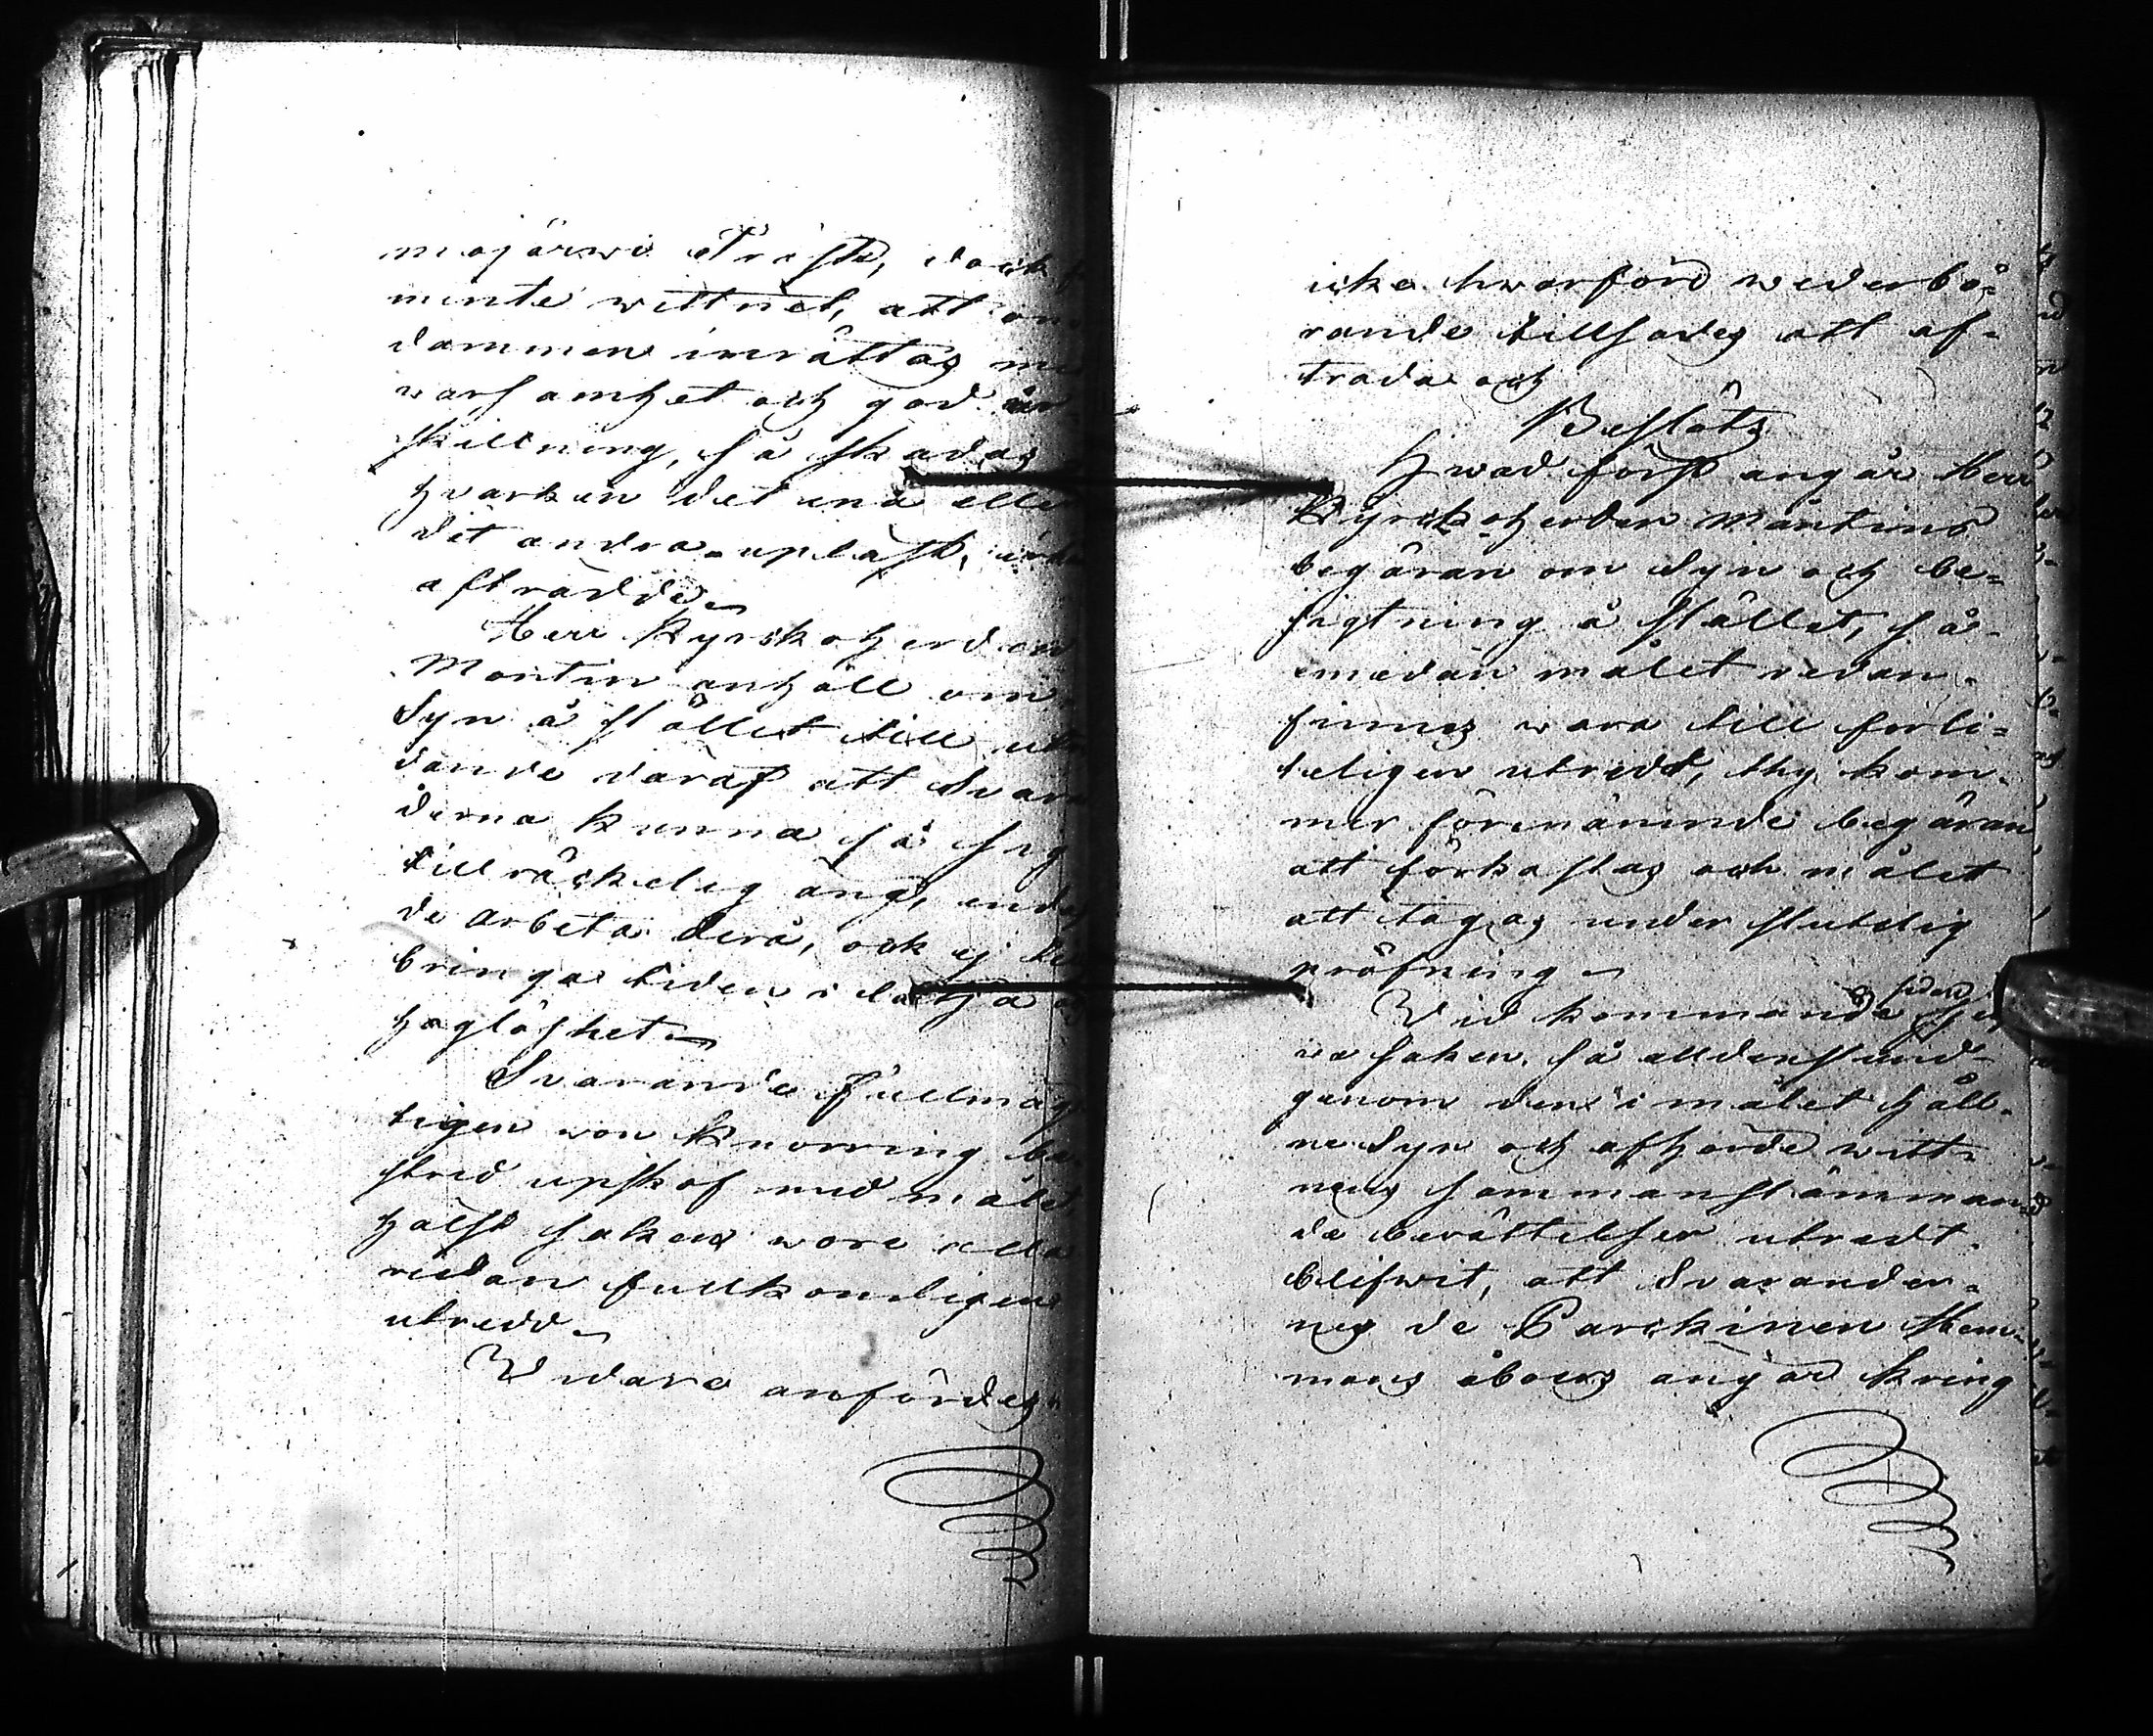 majärwi Träsk, dock
mente wittnet, att om
dammen inrättas me
warsamhet och god an
ställning, så skadas
hvarken det ena elle
det andra. upläst,
afträdde.
Herr Kyrckoherden
Montin anhöll om
Syn å stället till utr
dande däraf att Svara
derna kunna få sig
tillräckelig äng,
de arbeta derå, och ej
bringa tiden i lättja o
håglöshet.
Svarande fullmäg
tigen von Knorring be
stred upskof med måle
hälst saken wore alle
redan fullkomligen
utredd.
Widare anfördes
icke hwarföre wederbö=
rande tillsades att af=
träda och
Beslöts
Hwad först angår Herr
Kyrckoherden Montins
begäran om Syn och be=
sigtning å stället, så
emedan målet redan
finnes wara till förli=
teligen utredt, thy kom=
mer förenämnde begäran
att förkastas och målet
att tagas under slutelig
pröfning.
Widkommande sjelf
wa saken, så alldenstund
genom den i målet håll=
ne Syn och afhörde witt=
nens sammanstämman
de berättelser utredt
blifwit, att Svarander=
nes de Parckinen Hem=
mans åboers ängar kring